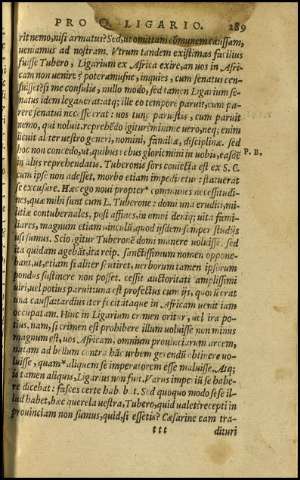 PRO Q. LIGARIO. 289
rit nemo, nisi armatus? Sed, ut omittam communem caussam,
ueniamus ad nostram. Vtrum tandem existimas facilius
fuisse Tubero, Ligarium ex Africa exire, an uos in Afri-
cam non uenire? poteramusne, inquies, cum senatus cen-
suisset? si me consulis, nullo modo, sed tamen Ligarium se-
natus idem legauerat: atq; ille eo tempore paruit, cum pa-
rere senatui necesse erat: uos tunc paruistis, cum paruit
nemo, qui noluit. reprehēdo igitur? minime uero, neq; enim
licuit aliter uestro generi, nomini, familiæ, disciplinæ. sed
hoc non concedo, ut, quibus rebus gloriemini in uobis, easdē
P. B.
in alijs reprehendatis. Tuberonis sors coniecta est ex S. C.
cum ipse non adesset, morbo etiam impediretur: statuerat
se excusare. Hæc ego noui propter* communes necessitudi-
nes, quæ mihi sunt cum L. Tuberone: domi una eruditi, mi-
litiæ contubernales, post affines, in omni deniq; uita fami-
liares, magnum etiam uinculū, quod ijsdem semper studijs
usi sumus. Scio igitur Tuberonē domi manere uoluisse. sed
ita quidam agebāt, ita reip. sanctissimum nomen oppone-
bant, ut, etiam si aliter sentiret, uerborum tamen ipsorum
pondus sustinere non posset. cessit auctoritati amplissimi
uiri, uel potius paruit. una est profectus cum ijs, quorū erat
una caussa. tardius iter fecit. itaque in Africam uenit iam
occupatam. Hinc in Ligarium crimen oritur, uel ira po-
tius, nam, si crimen est prohibere illum uoluisse non minus
magnum est, uos Africam, omnium prouinciarum arcem,
natam ad bellum contra hāc urbem gerendū obtinere uo-
luisse, quam* aliquem se imperatorem esse maluisse. Atq;
is tamen aliquis, Ligarius non fuit. Varus imperiū se habe-
re dicebat: fasces certe habebat. Sed quoquo modo sese il-
lud habet, hæc querela uestra, Tubero, quid ualet? recepti in
prouinciam non sumus, quid, si essetis? Cæsarine eam tra-
ttt dituri